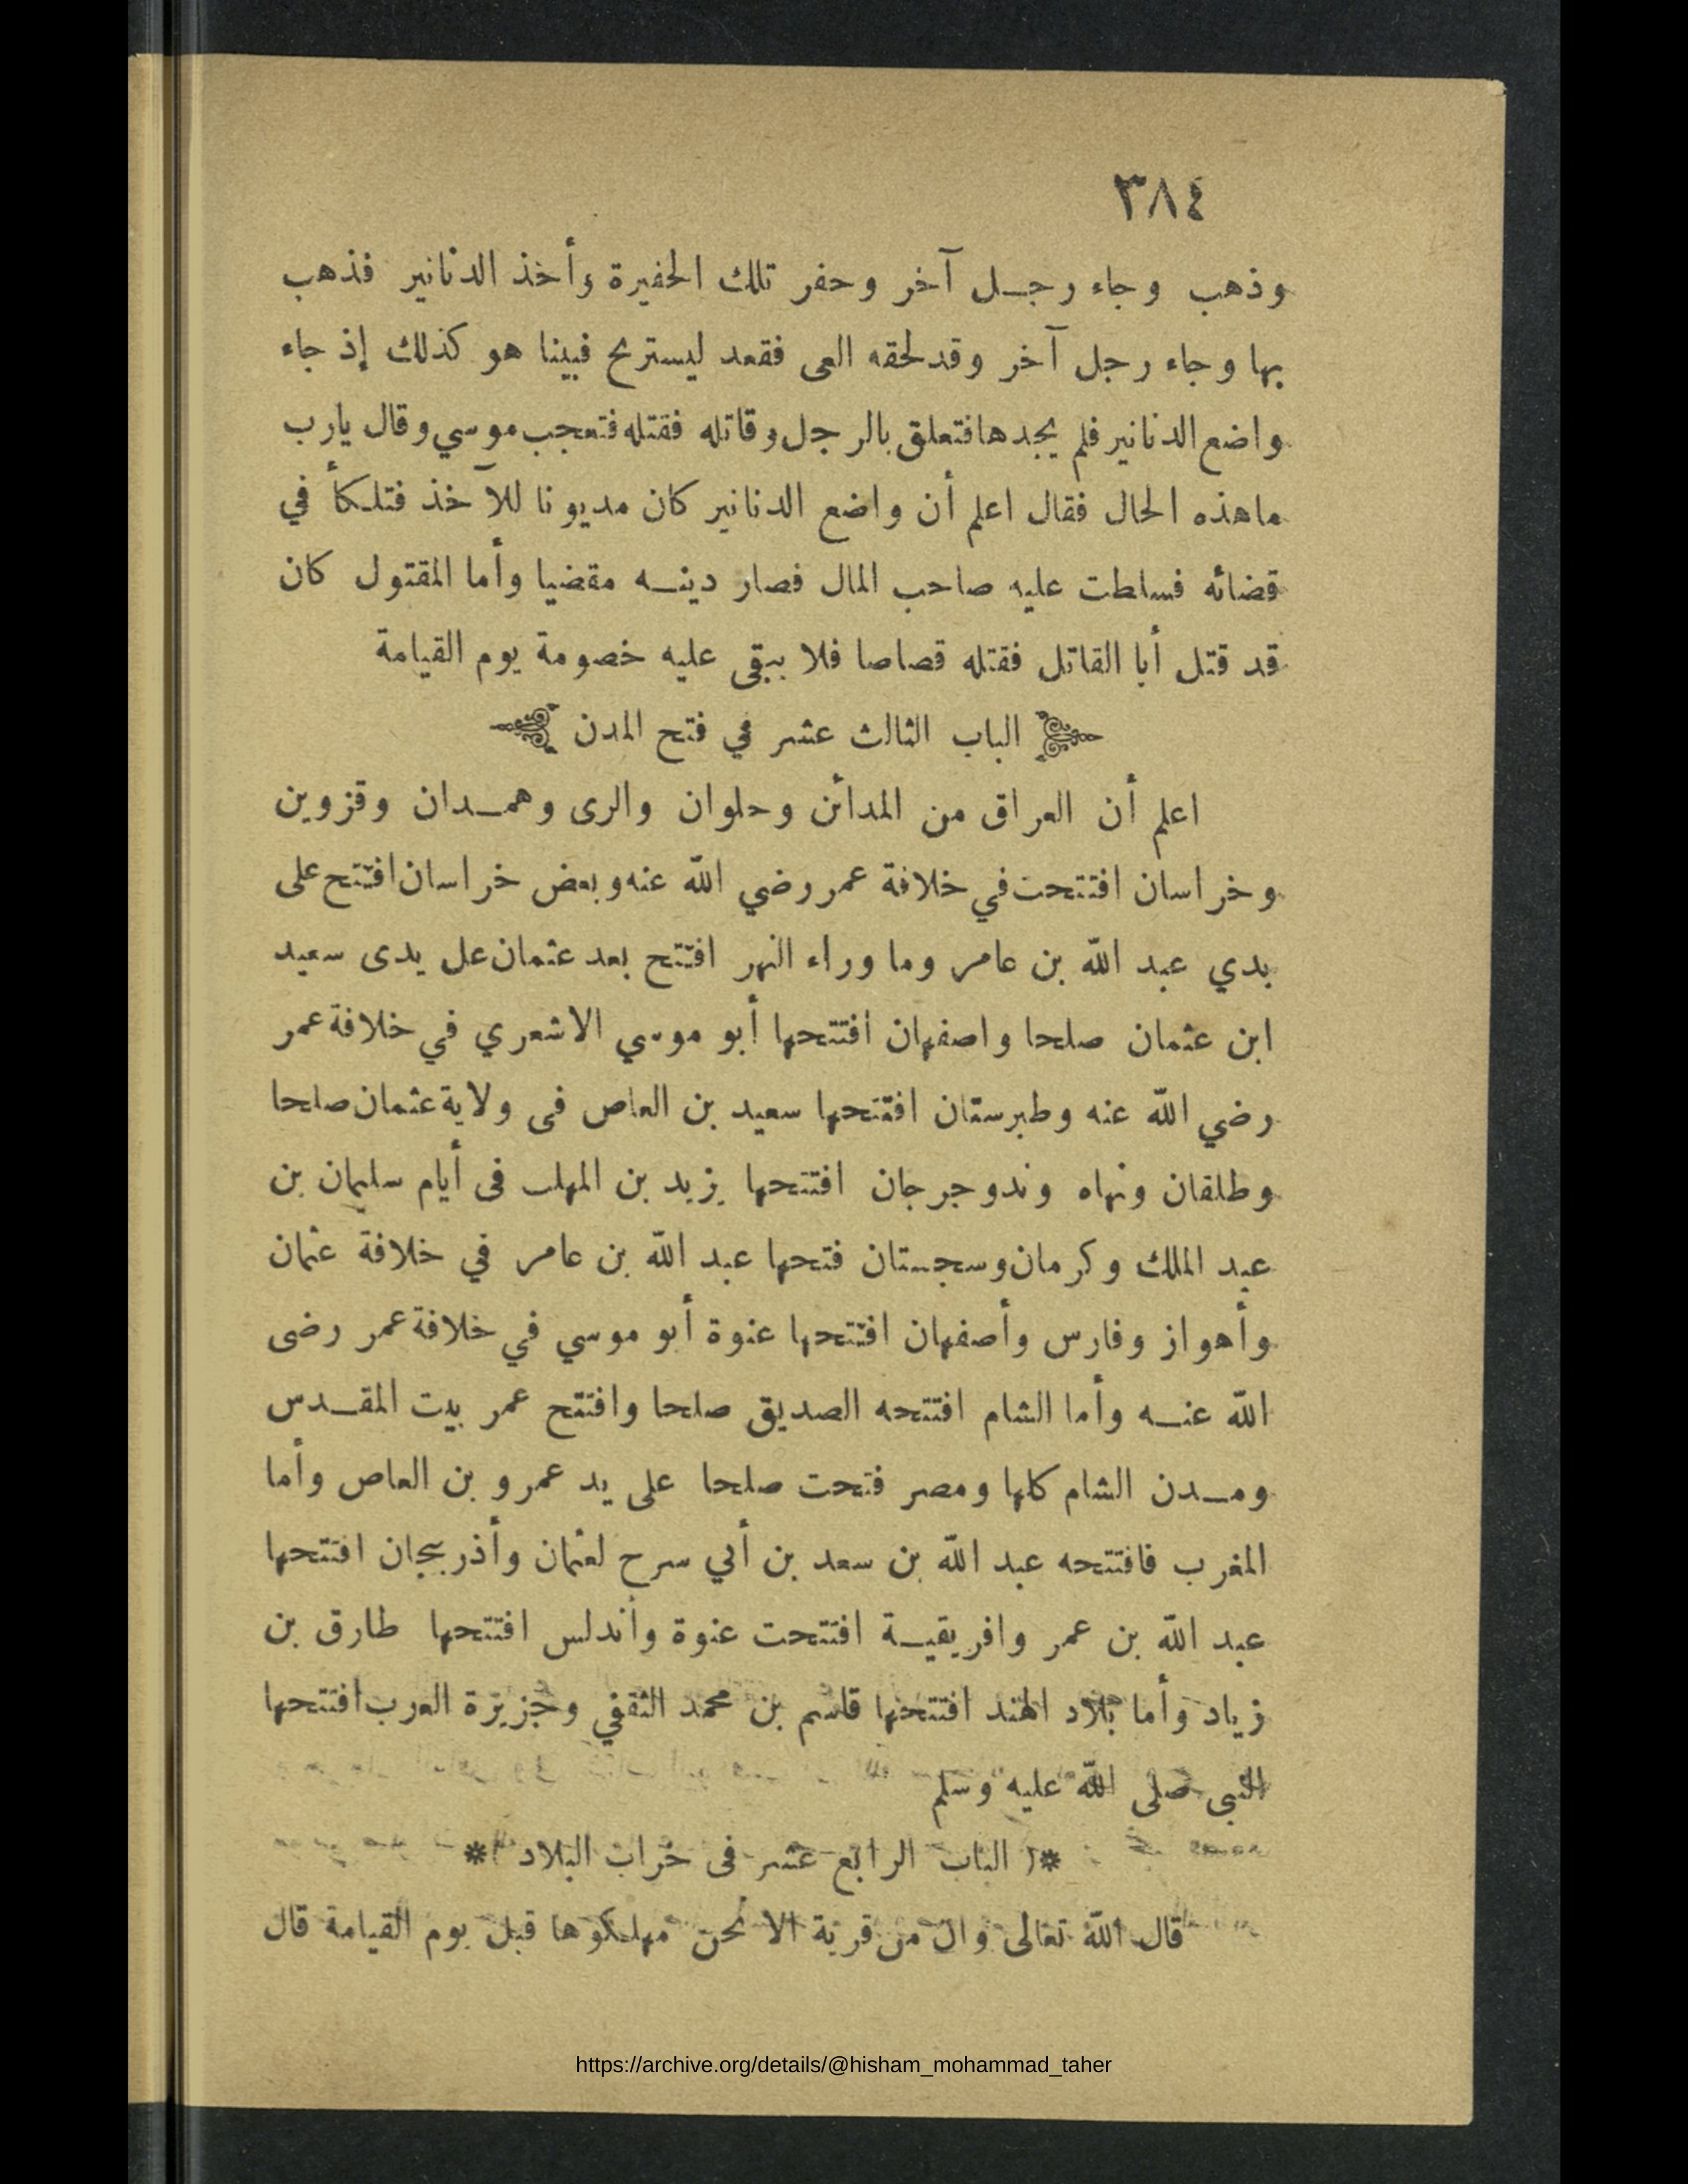 ٣٨٤
وذهب وجاء رجل آخر وحفر تلك الحفيرة وأخذ الدنانير فذهب
بها وجاء رجل آخر وقد لحقه العى فقعد ليستريح فبينا هو كذلك إذ جاء
واضع الدنانير فلم يجدها فتعلق بالرجل وقاتله فقتله فتعجب موسي وقال يارب
ماهذه الحال فقال اعلم أن واضع الدنانير كان مديونا للآخذ فتلكأ في
قضائه فسلطت عليه صاحب المال فصار دينه مقضيا وأما المقتول كان
قد قتل أبا القاتل فقتله قصاصا فلا يبقى عليه خصومة يوم القيامة
الباب الثالث عشر في فتح المدن
اعلم أن العراق من المدائن وحلوان والرى وهمدان وقزوين
وخراسان افتتحت في خلافة عمر رضي الله عنه وبعض خراسان افتتح على
يدي عبد الله بن عامر وما وراء النهر افتتح بعد عثمان عل يدى سعيد
ابن عثمان صلحا واصفهان افتتحها أبو موسي الاشعري في خلافة عمر
رضي الله عنه وطبرستان افتتحها سعيد بن العاص فى ولاية عثمان صلحا
وطلقان ونهاه وندوجرجان افتتحها يزيد بن المهلب فى أيام سليمان بن
عبد الملك وكرمان وسجستان فتحها عبد الله بن عامر في خلافة عثمان
وأهواز وفارس وأصفهان افتتحها عنوة أبو موسي في خلافة عمر رضى
الله عنه وأما الشام افتتحه الصديق صلحا وافتتح عمر بيت المقدس
ومدن الشام كلها ومصر فتحت صلحا على يد عمرو بن العاص وأما
المغرب فافتتحه عبد الله بن سعد بن أبي سرح لعثمان وأذربيجان افتتحها
عبد الله بن عمر وافريقية افتتحت عنوة وأندلس افتتحها طارق بن
زياد وأما بلاد الهند افتتحها قاسم بن محمد الثقفي وجزيرة العرب افتتحها
النبى صلى الله عليه وسلم
*( الباب الرابع عشر فى خراب البلاد )*
قال الله تعالى وان من قرية الا نحن مهلكوها قبل يوم القيامة قال
https://archive.org/details/@hisham_mohammad_taher